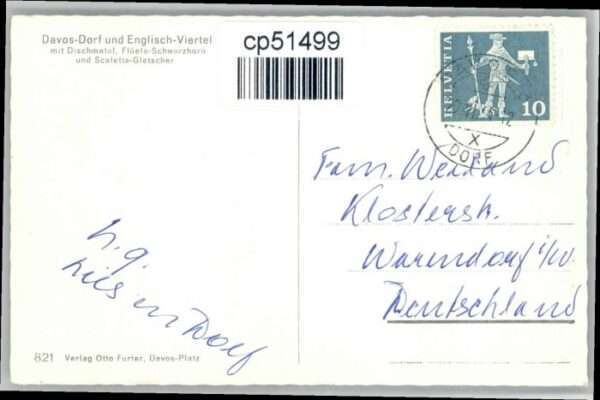 Davos-Dorf und Englisch-Viertel
mit Dischmatal, Flüela-Schwarzhorn
und Scaletta-Gletscher
cp51499
HELVETIA
10
X
DORF
Fam. Weiland
Klosterstr.
Warendorf i/W.
Deutschland
h. g.
821 Verlag Otto Furter, Davos-Platz